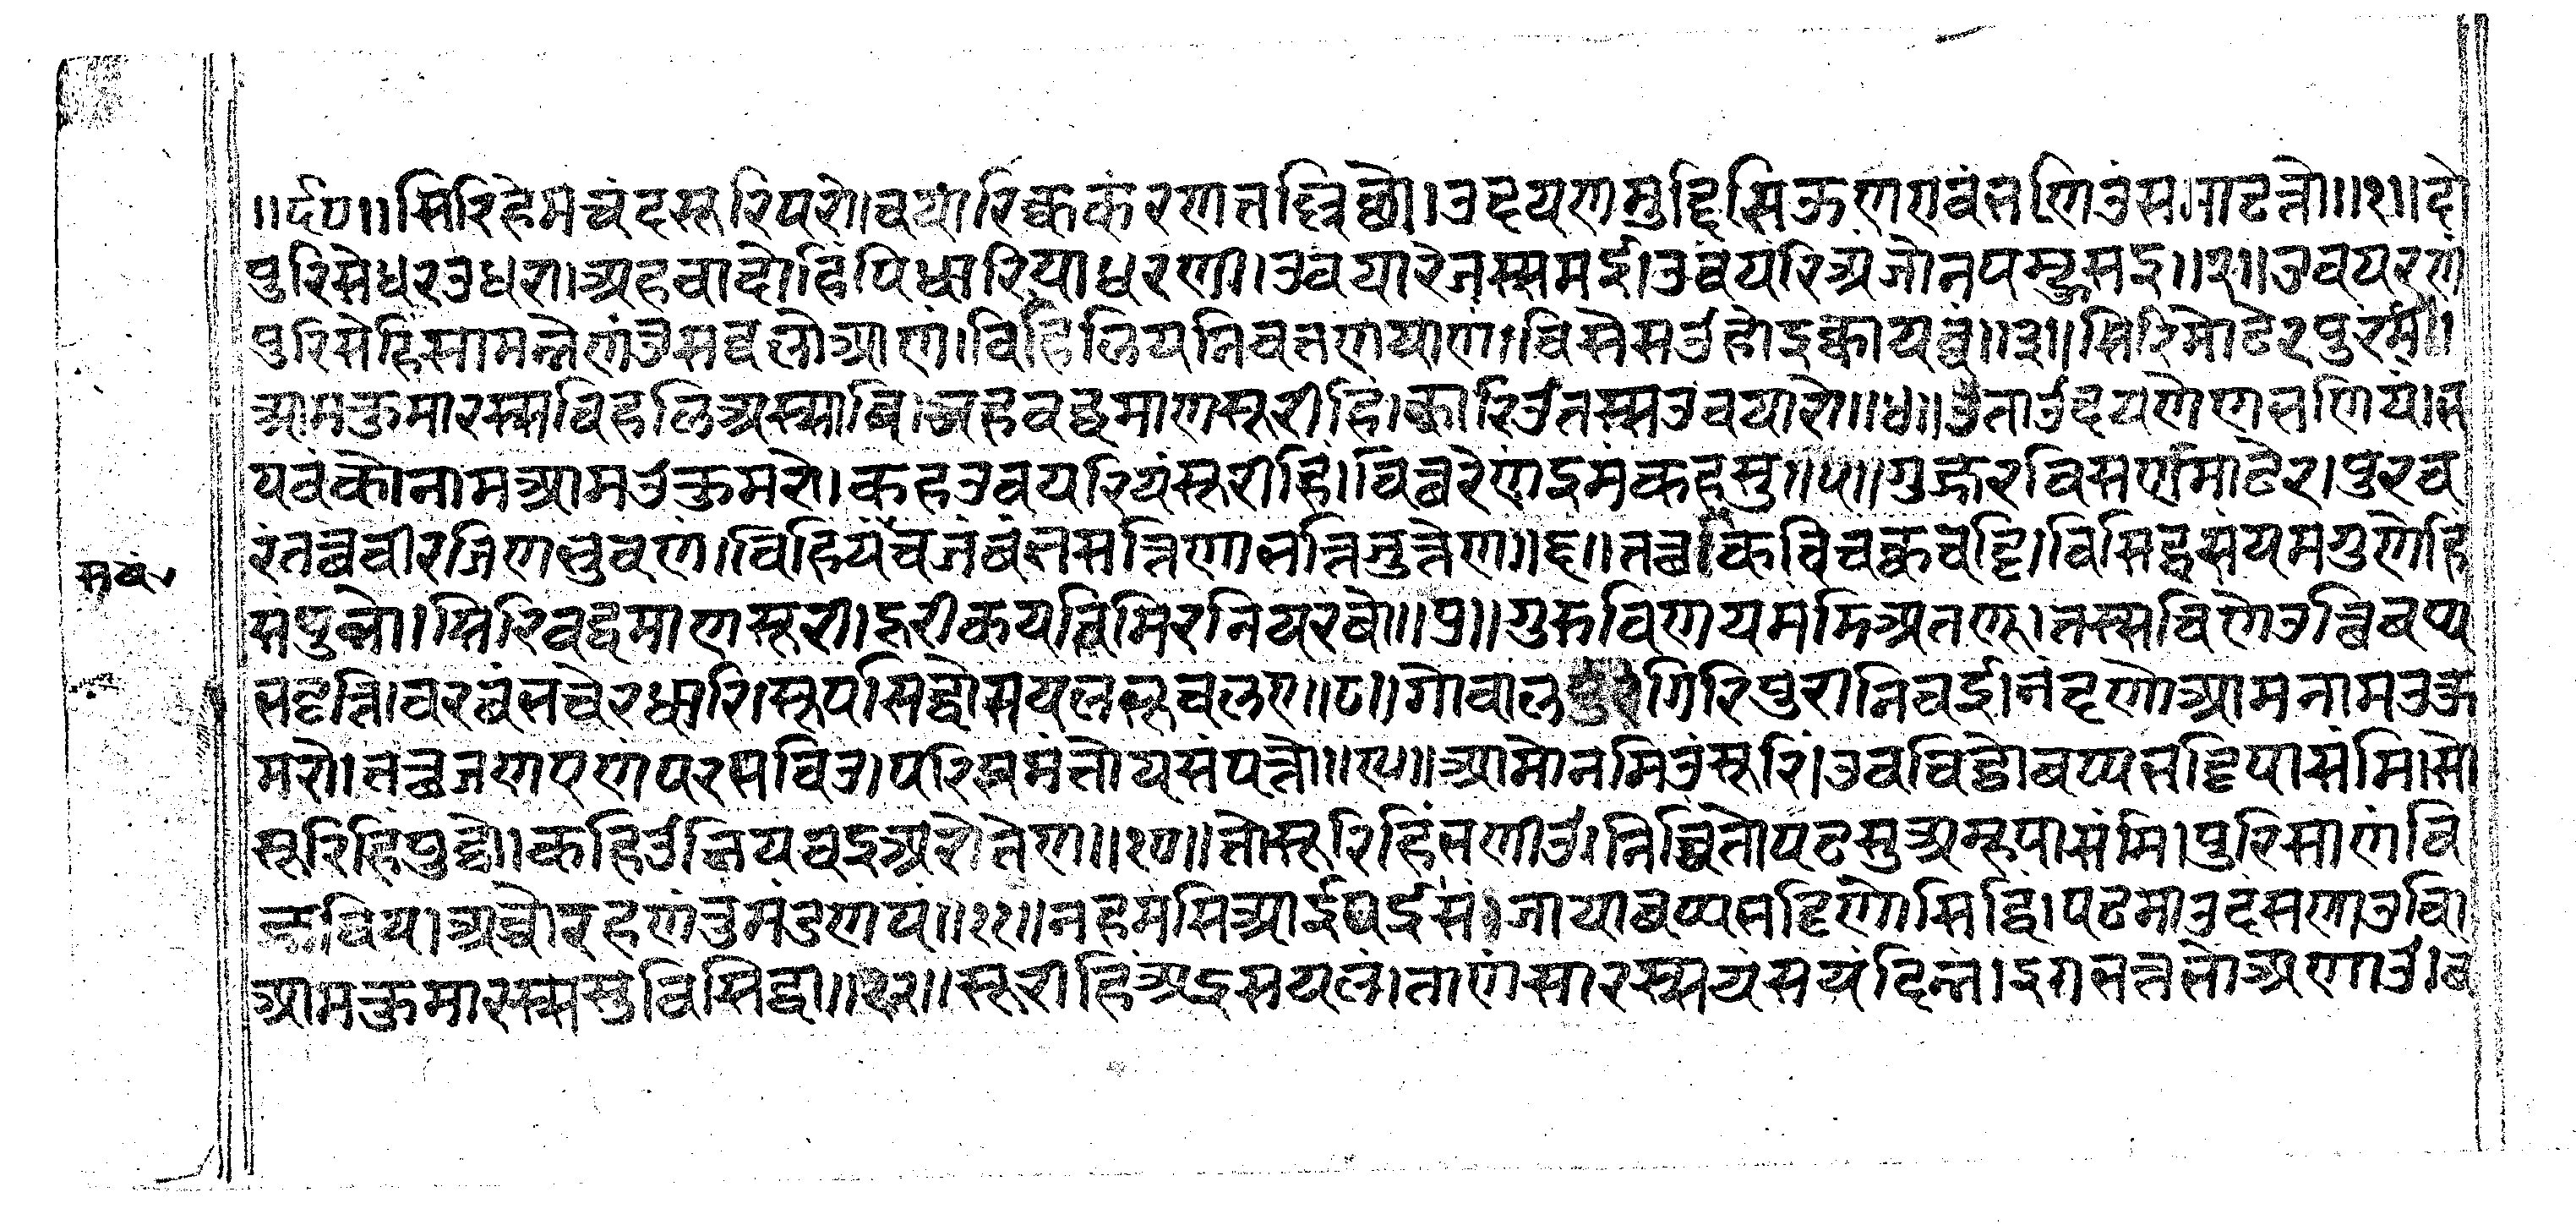 ॥ ॥सिरिहेमचंदसूरिपरोवयारिक्ककरणतल्लिच्छो।उदयणमुद्दिसिऊणएवंभणिउंसमाढत्तो॥१॥दो
पुरिसेधरउधरा।अहवादोहिंपिधारियाधरणी।उवयारेजस्समई।उवयरिअंजोनपम्हुसइ॥२॥उवयरणं
पुरिसेहिंसामन्नेणंउसव्वलोआणं।विहलियनिवतणयाणं।विसेसउंहोइकायव्वं॥३॥सिरिमोढेरपुरंमी॥
आमकुमारस्सविहलिअस्सावि।जहवद्धमाणसूरीहिं।कारिउंतस्सउवयारो॥४॥उताउंदयणेणभणियं।भ
यवंकोनामआमउकुमरो।कहउवयरियंसूरीहिं।वित्थरेणंइमंकहसु॥५॥गुज्जरविसएमोढेरा।पुरव
रंतत्थवीरजिणभुवणं।विहियंचजंबंभसत्तिणाभत्तिजुत्तेण॥६॥तत्थकविचक्कवट्टि।विसिट्ठसंयमगुणेहिं
संपुन्नो।सिरिवद्धमाणसूरी।दूरीकयतिमिरनियरवो॥७॥गुरुविणयमंमिअतणू।तस्सविणेउत्थिबप्प
भट्टत्ति।वरबंभचेरधारि।सूपसिद्धोसयलभूवलए॥८॥गोवालपुरगिरिपुरा।निवई।नंदणोआमनामउकु
मरो।तत्थजणएणंपरभविउ।परिभमंतोयसंपत्तो॥९॥आमोनमिउंसूरिं।उवविट्ठोबप्पभट्टिपासंमि।सो
सूरिहिंपुट्ठो।कहिउंनिययवइअरोतेण॥१०॥तोसूरिहिंभणीउं।निच्चिंतोपढसुअम्हपासंमि।पुरिसाणंवि
ज्जाविय।अच्चोरहणंउमंडणयं॥११॥तहमंसिआईपईसं।जायाबप्पभट्टिणोसद्धिं।पढमाउदंसणाउवि।
आमकुमारस्ससुविसिट्ठा॥१२॥सूरीहिंअइसयलं।ताणंसारस्सयंसयंदिन्नं।इगसत्तसोअणाउं।व